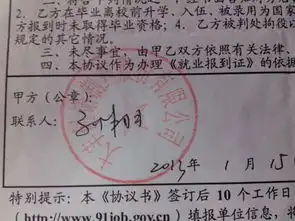 2. 乙方在毕业离校前升学、入伍、被录用为国家
方报到时未取得毕业资格; 4. 乙方被判处拘役
规定的其它情况。
三、未尽事宜, 由甲乙双方依照有关法律、
四、本协议作为办理《就业报到证》的依据
甲方 (公章):
联系人:
有限公司
2013 年 1 月 15
特别提示: 本《协议书》签订后 10 个工作日
(http://www.91job.gov.cn) 填报单位信息, 将